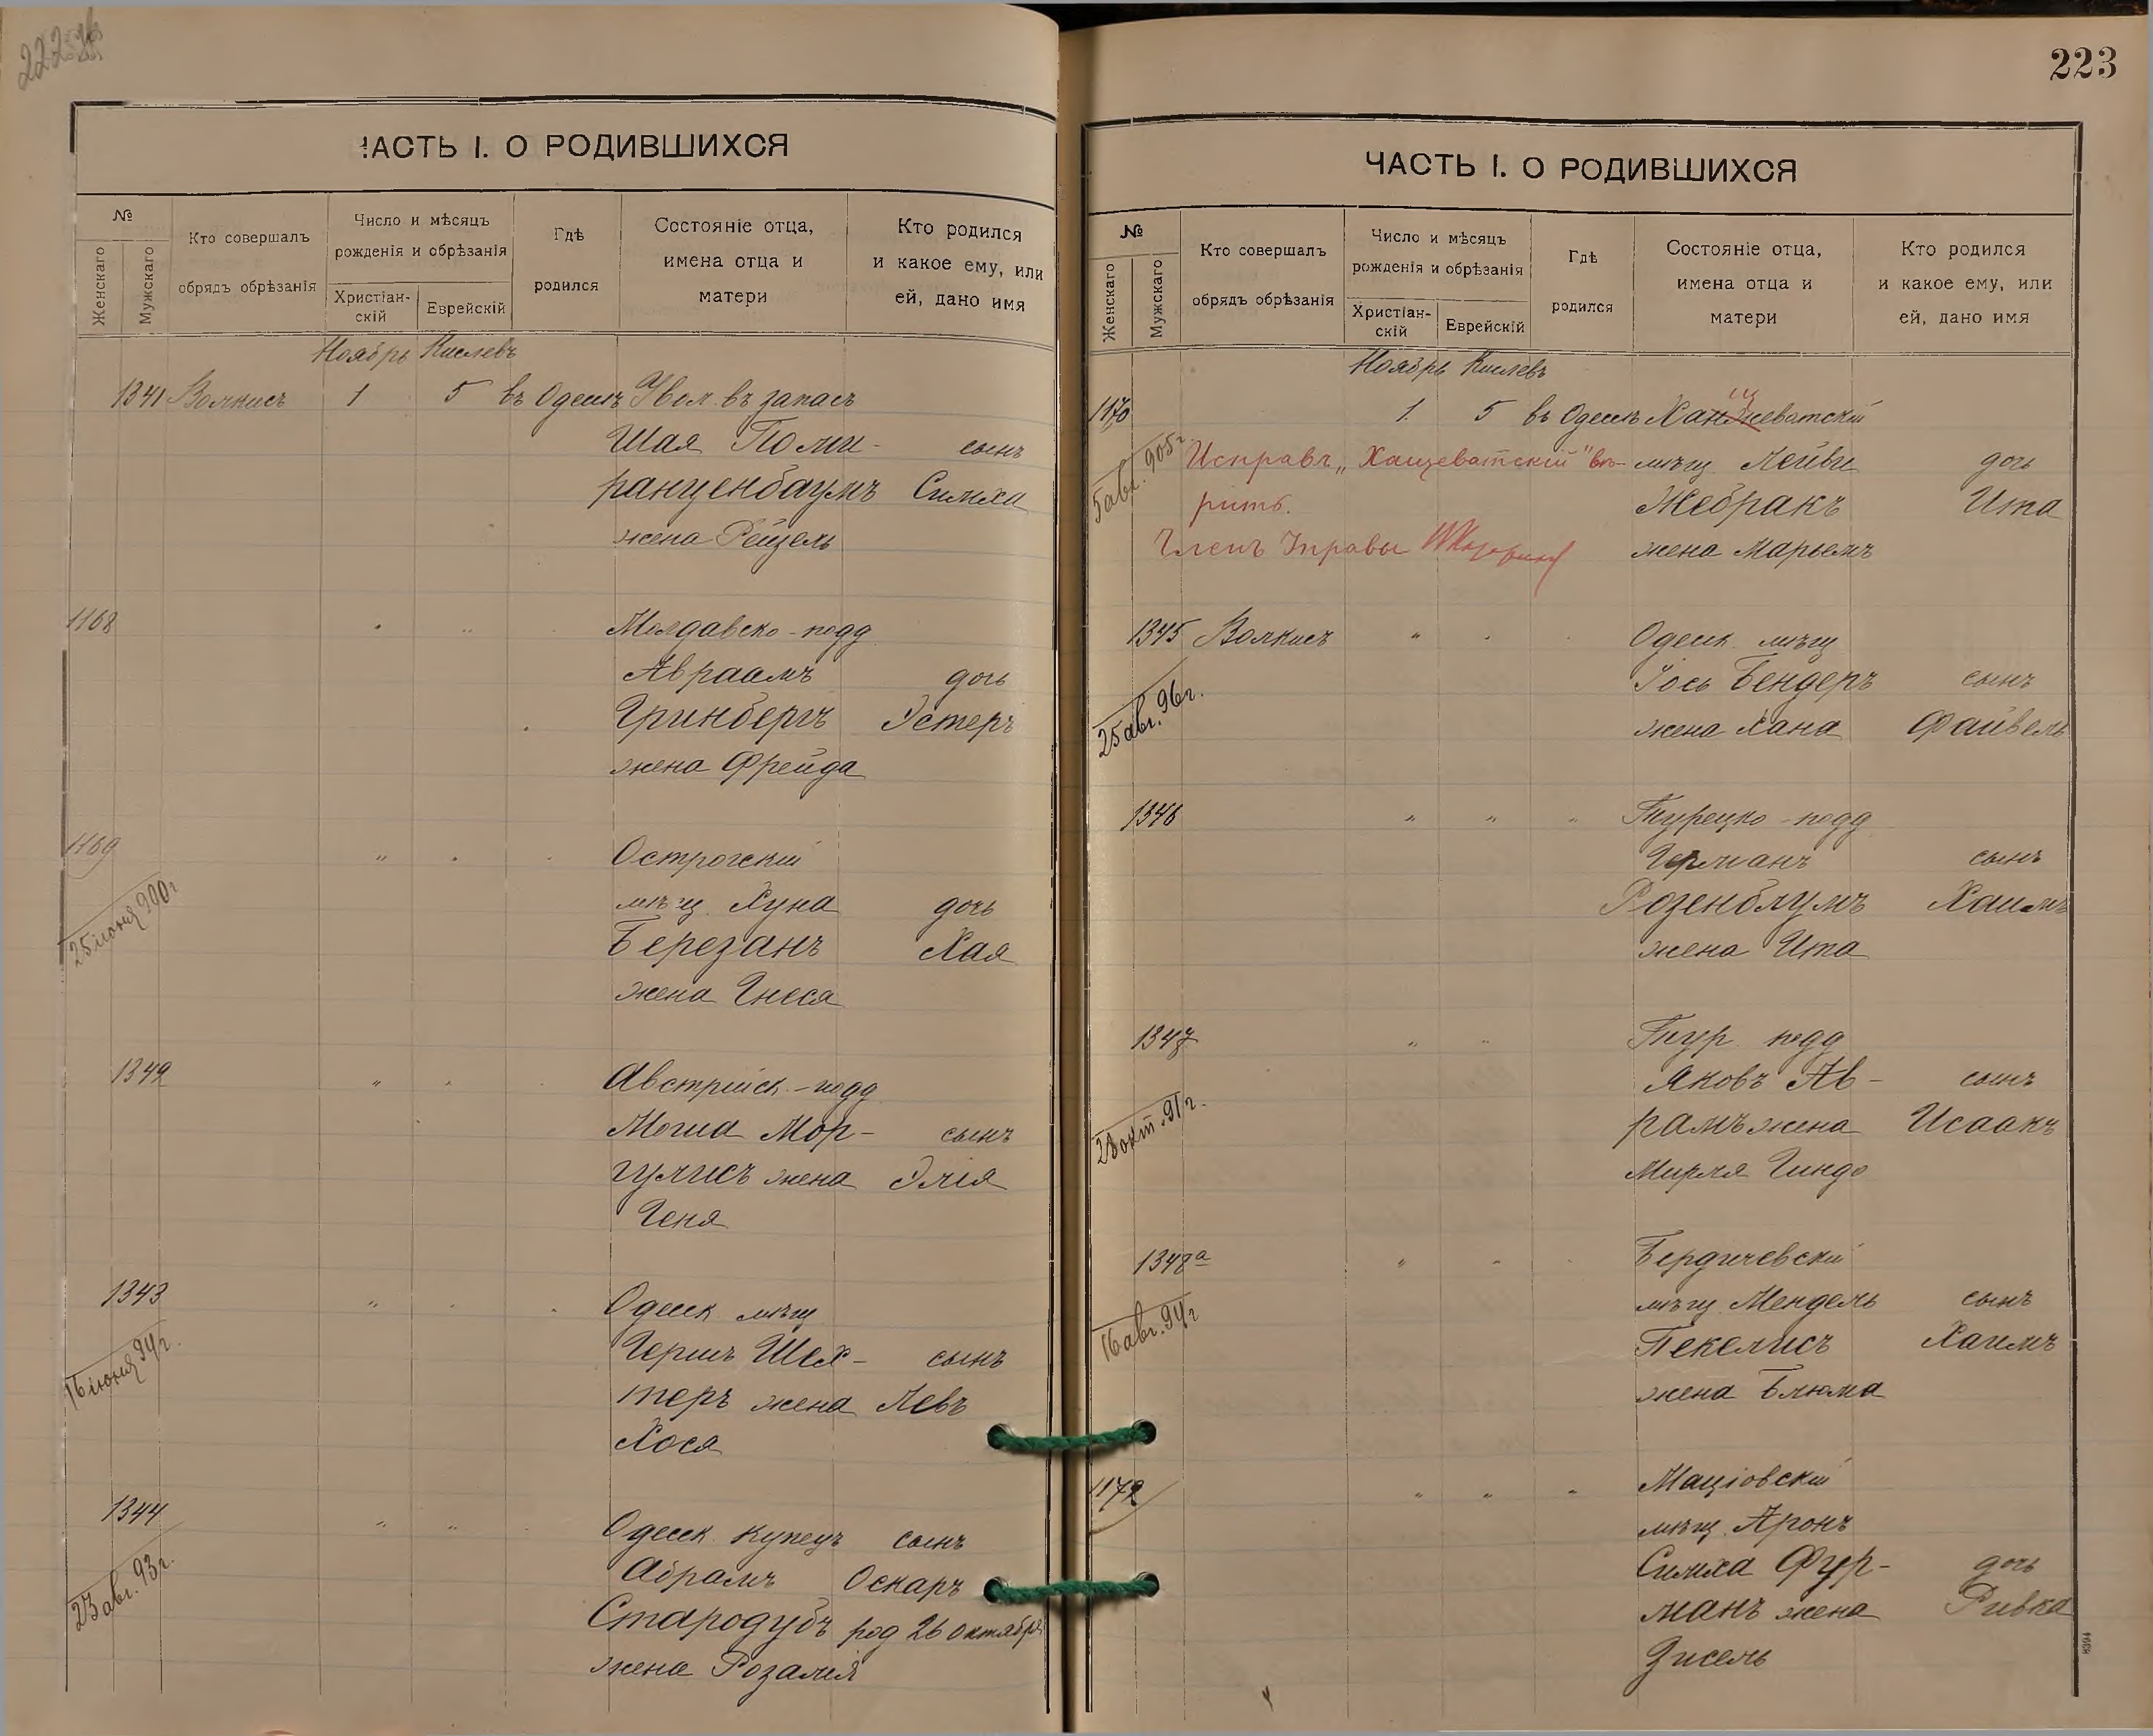 ЧАСТЬ I. О РОДИВШИХСЯ
№
Женскаго
Мужскаго
Кто совершалъ
обрядъ обрѣзанія
Число и мѣсяцъ
рожденія и обрѣзанія
Христіан-
скій
Еврейскій
Гдѣ
родился
Состояніе отца,
имена отца и
матери
Кто родился
и какое ему, или
ей, дано имя
Ноябрь Кислевъ
1341 Волкисъ 1 5 въ Одессѣ Увол. въ запасъ
Шая Поми- сынъ
ранценбаумъ Симха
жена Рейзель
1168 " " Молдавско-подд
Авраамъ дочь
Гринбергъ Эстеръ
жена Фрейда
1169 " " Острогскій
25 іюня 900 г. мѣщ. Хуна дочь
Березанъ Хая
жена Гнеся
1342 " " Австрійск.-подд
Мошка Мор- сынъ
гулисъ жена Элія
Геня
1343 " " Одесск. мѣщ
16 іюня 94 г. Гершъ Шех- сынъ
теръ жена Левъ
Хося
1344 " " Одесск. купецъ сынъ
23 авг. 93 г. Абрамъ Оскаръ
Стародубъ род 26 октября
жена Розалія
223
ЧАСТЬ I. О РОДИВШИХСЯ
№
Женскаго
Мужскаго
Кто совершалъ
обрядъ обрѣзанія
Число и мѣсяцъ
рожденія и обрѣзанія
Христіан-
скій
Еврейскій
Гдѣ
родился
Состояніе отца,
имена отца и
матери
Кто родился
и какое ему, или
ей, дано имя
Ноябрь Кислевъ
1170 1 5 въ Одессѣ Ханжеватскій
щ
5 авг. 905 г. Исправл. „Хащеватскій" вѣ- мѣщ. Лейви дочь
рить. Жебракъ Ита
Членъ Управы жена Марьемъ
1345 Волкисъ " " Одесск. мѣщ
25 авг. 96 г. Іось Бендеръ сынъ
жена Хана Файвель
1346 " " " Турецко-подд
Германъ сынъ
Розенблумъ Хаимъ
жена Ита
1347 " " Тур. подд
23 окт. 91 г. Яковъ Ав- сынъ
рамъ жена Исаакъ
Мирля Гинда
1348а " " Бердичевскій
16 авг. 94 г. мѣщ. Мендель сынъ
Пекелисъ Хаимъ
жена Блюма
1172 " " " Маціовскій
мѣщ. Аронъ
Симха Фур- дочь
манъ жена Ривка
Зисель